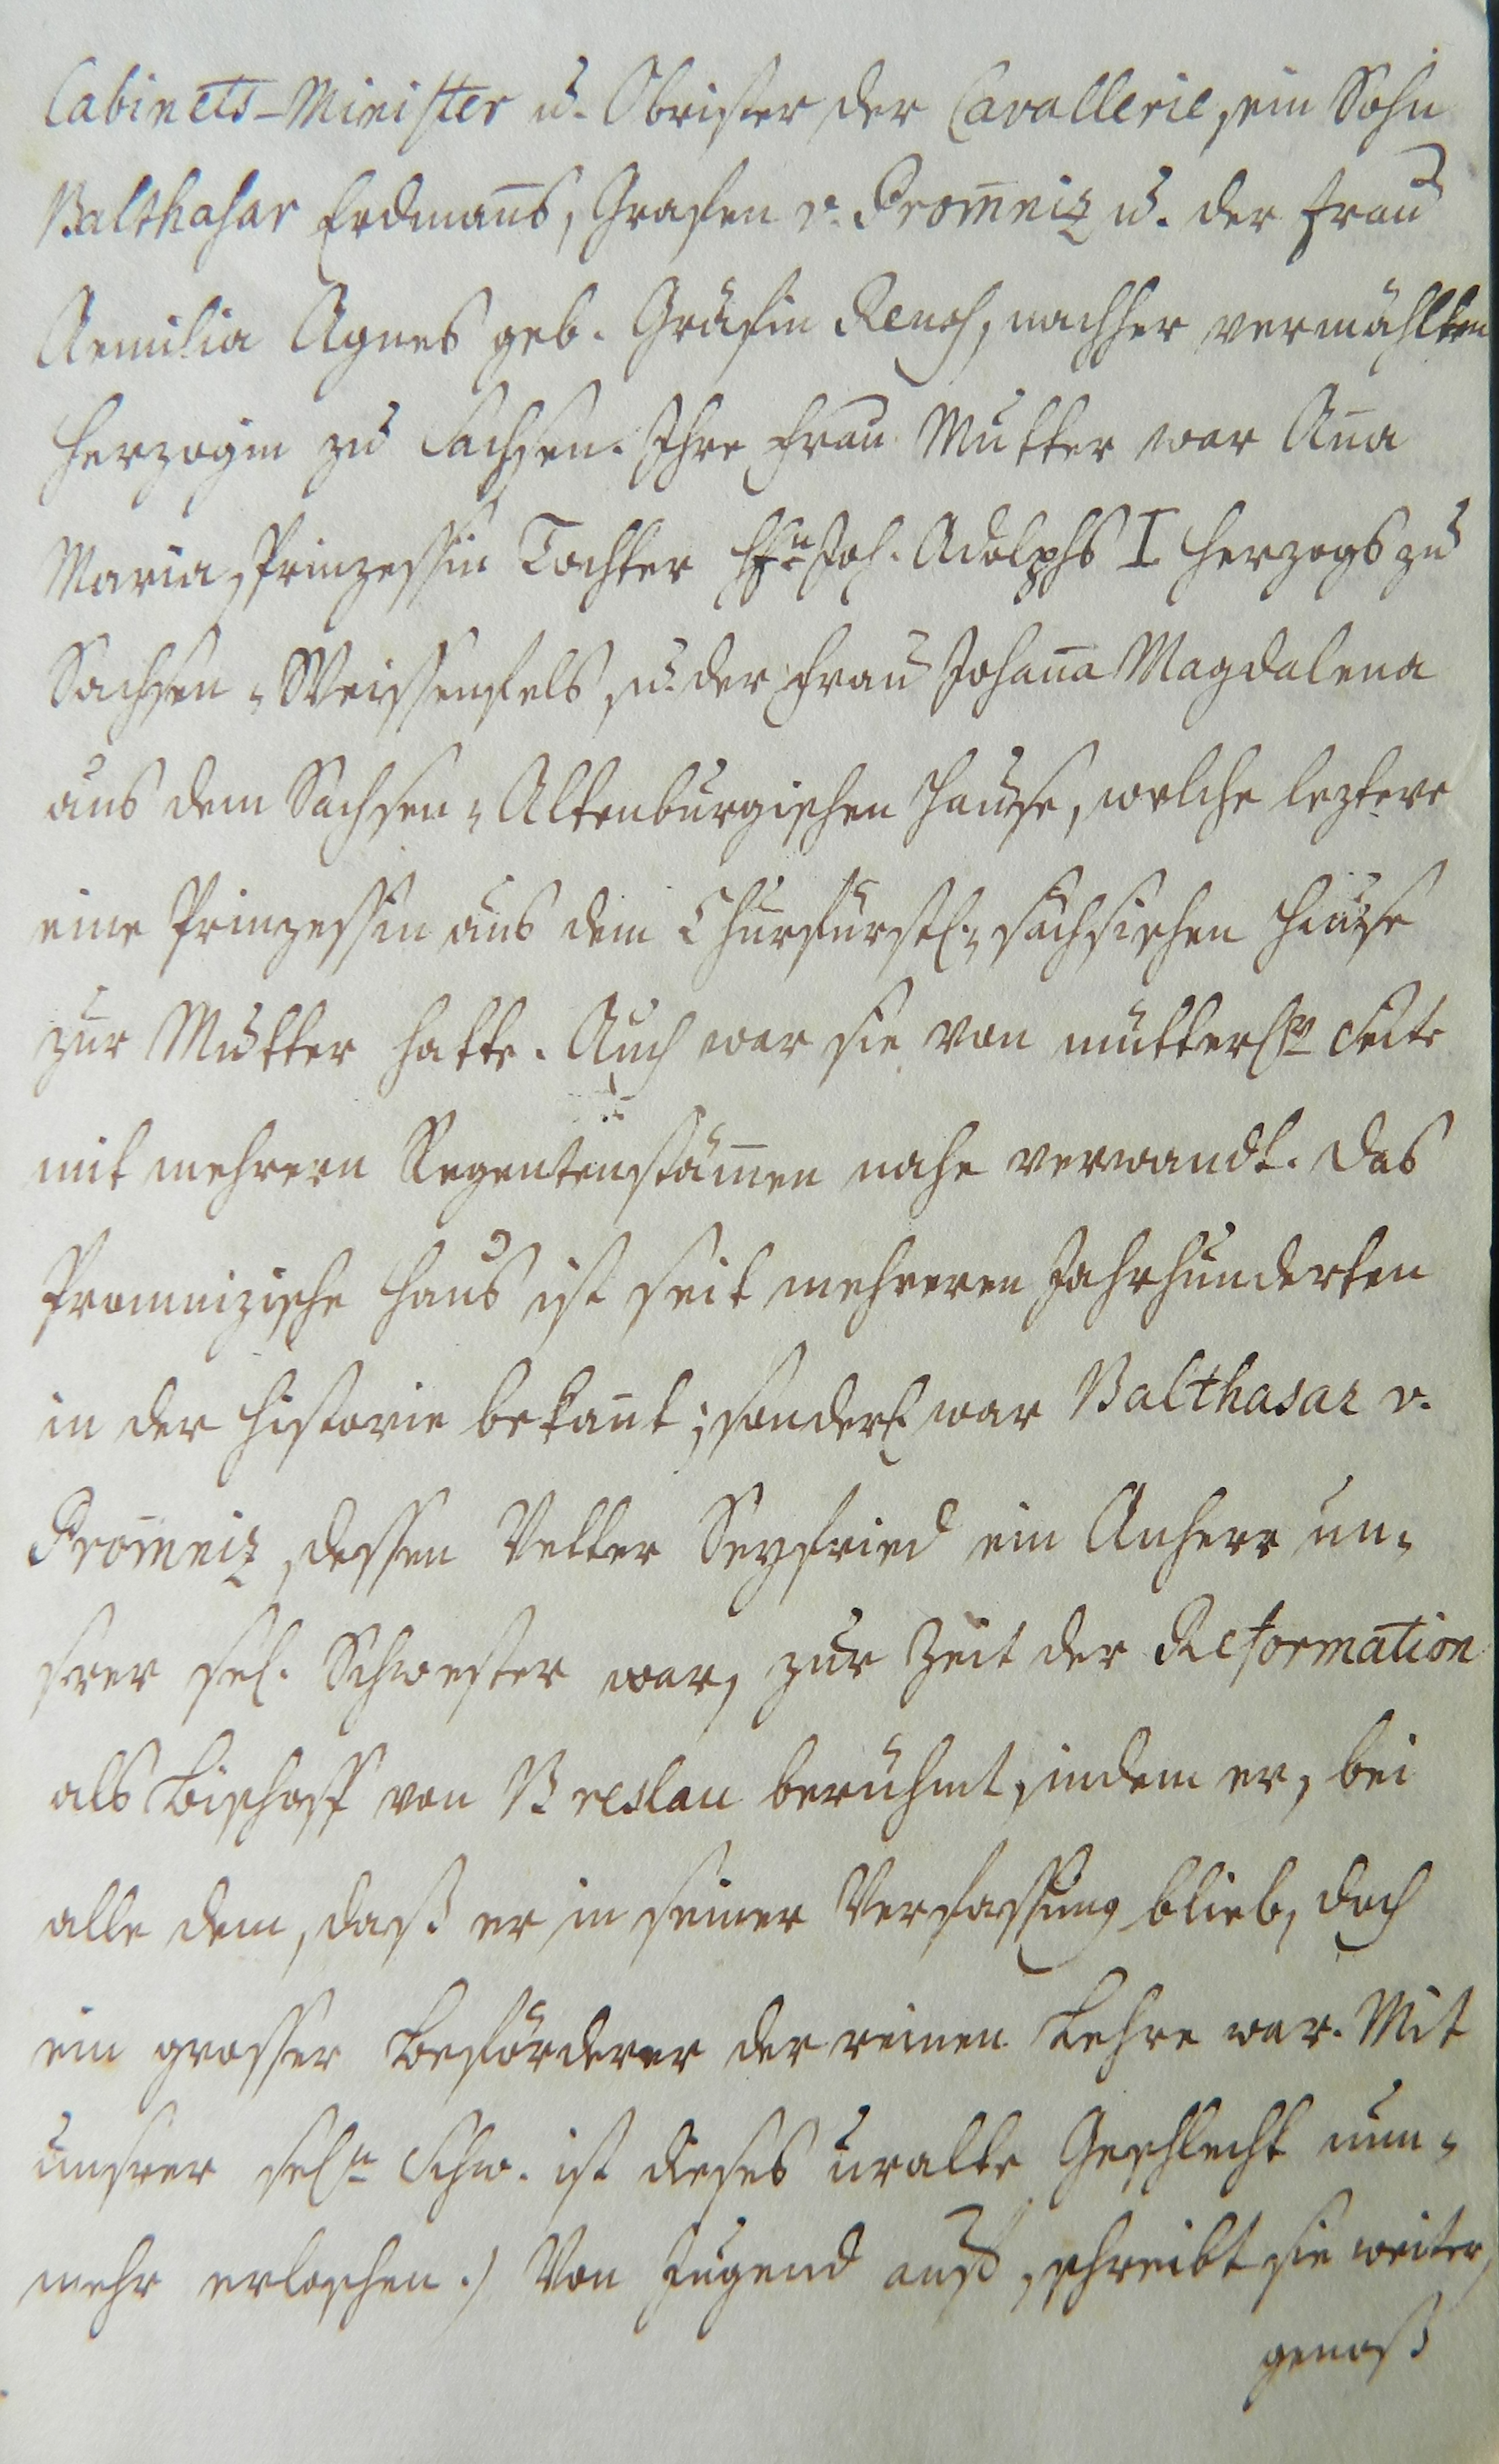 Cabinets-Minister u. Obrister der Cavallerie, ein Sohn
Balthasar Erdman̅s, Grafen v. Prom̅niz u. der Frau
Aemilia Agnes geb. Gräfin Reuß, nachher vermählten
Herzogin zu Sachsen. Ihre Frau Mutter war An̅a
Maria, Prinzessin Tochter Hrn Joh. Adolphs I Herzogs zu
Sachsen-Weissenfels, u. der Frau Johan̅a Magdalena
aus dem Sachsen-Altenburgischen Hause, welche leztere
eine Prinzessin aus dem Churfürstl.-sächsischen Hause
zur Mutter hatte. Auch war sie von mütterlr Seite
mit mehrern Regentenstäm̅en nahe verwandt. Das
Promnizische Haus ist seit mehreren Jahrhunderten
in der Historie bekan̅t; sonderl. war Balthasar v.
Prom̅niz, dessen Vetter Seyfried ein Anherr un-
srer sel. Schwester war, zur Zeit der Reformation
als Bischoff von Breslau berühmt, indem er, bei
alle dem, daß er in seiner Verfassung blieb, doch
ein grosser Beförderer der reinen Lehre war. Mit
unsrer seln Schw. ist dieses uralte Geschlecht nun-
mehr erloschen.) Von Jugend auf, schreibt sie weiter,
genoß